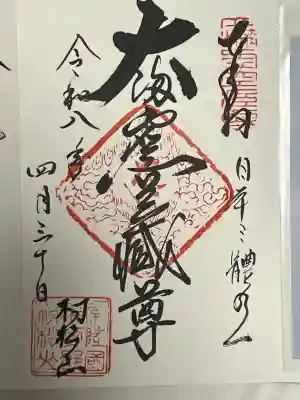 奉拝 日本三體の一
大満虚空蔵尊
令和八年
四月三十日
村松山